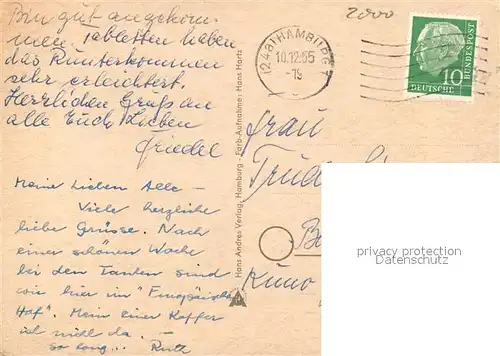 Bin gut angekom-
men, Tabletten haben
das Runterkommen
sehr erleichtert.
Herzlichen Gruß an
alle Euch Lieben
Friedel
Meine Lieben Alle –
Viele herzliche
liebe Grüsse. Nach
einer schönen Woche
bei den Tanten sind
wir hier im "Europäischen
Hof". Mein einer Koffer
ist nicht da. –
so long... Ruth
Hans Andres Verlag, Hamburg - Farb-Aufnahme: Hans Hartz
2000
(24a) HAMBURG
10.12.55
-19
10
DEUTSCHE BUNDESPOST
Frau
Trude
Kuno
privacy protection
Datenschutz